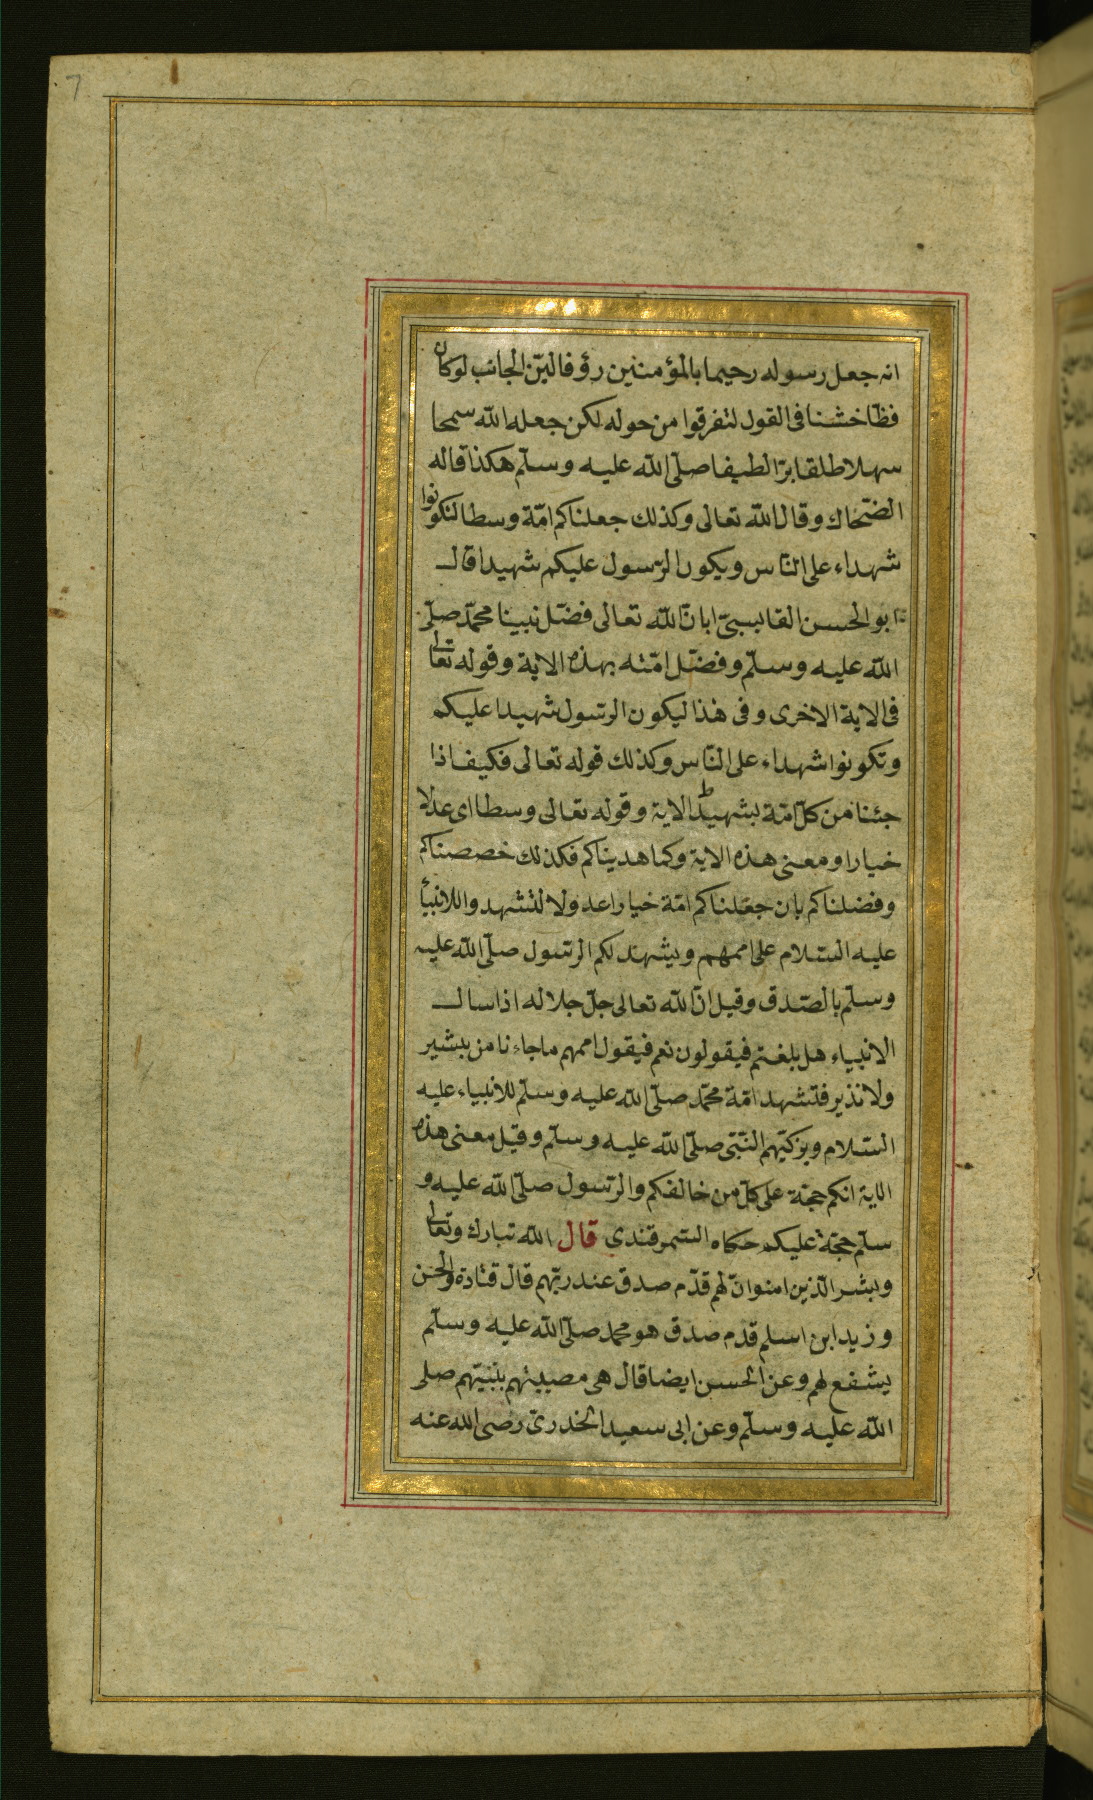 7
انه جعل رسوله رحيما بالمؤمنين رؤفا ليّن الجانب لو كان
فظّا خشنا فى القول لتفرقوا من حوله لكن جعله الله سمحا
سهلا طلقا برّا لطيفا صلّى الله عليه وسلّم هكذا قاله
الضّحاك وقال الله تعالى وكذلك جعلناكم امّة وسطا لتكونوا
شهداء على النّاس ويكون الرّسول عليكم شهيدا قال
ابو الحسن القابسىّ ابان الله تعالى فضل نبينا محمّد صلّى
الله عليه وسلّم وفضل امّته بهذه الاية وقوله تعالى
فى الاية الاخرى وفى هذا ليكون الرّسول شهيدا عليكم
وتكونوا شهداء على النّاس وكذلك قوله تعالى فكيف اذا
جئنا من كلّ امّة بشهيد الاية وقوله تعالى وسطا اى عدلا
خيارا ومعنى هذه الاية وكما هديناكم فكذلك خصصناكم
وفضلناكم بان جعلناكم امّة خيارا عدولا لتشهدوا للانبيأ
عليه السّلام على اممهم ويشهد لكم الرّسول صلّى الله عليه
وسلّم بالصّدق وقيل انّ الله تعالى جلّ جلاله اذا سال
الانبياء هل بلغتم فيقولون نعم فيقول اممهم ما جاءنا من بشير
ولا نذير فتشهد امّة محمّد صلّى الله عليه وسلّم للانبياء عليه
السّلام ويزكيّهم النّبىّ صلّى الله عليه وسلّم وقيل معنى هذه
الاية انكم حجّة على كلّ من خالفكم والرّسول صلّى الله عليه و
سلّم حجّة عليكم حكاه السّمرقندى قال الله تبارك وتعالى
وبشر الّذين امنوا انّ لهم قدم صدق عند ربّهم قال قتادة والحسن
وزيد ابن اسلم قدم صدق هو محمد صلّى الله عليه وسلّم
يشفع لهم وعن الحسن ايضا قال هى مصيبتهم بنبيّهم صلى
الله عليه وسلّم وعن ابى سعيد الخدرىّ رضى الله عنه